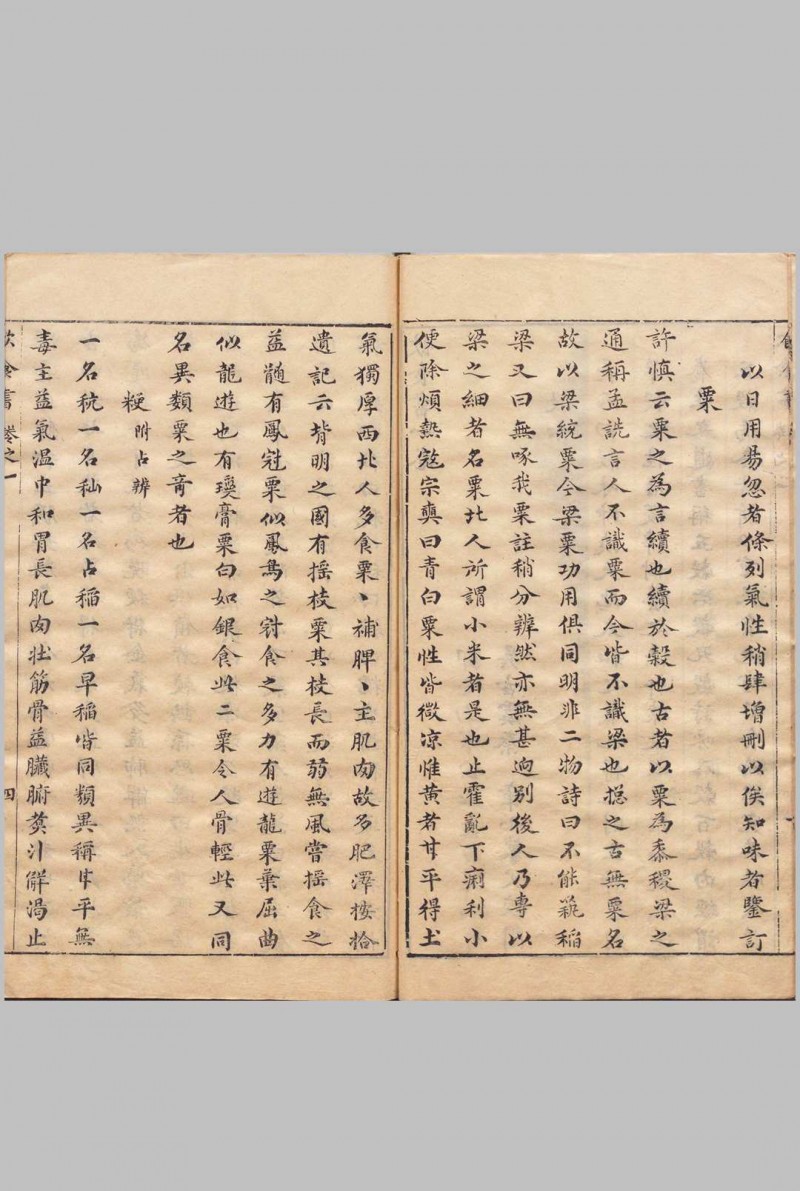 以日用易忽者條列氣性稍肆增刪以俟知味者鑒訂
粟
許慎云粟之為言續也續於穀也古者以粟為黍稷梁之
通稱孟詵言人不識粟而今皆不識梁也揔之古無粟名
故以梁統粟今梁粟功用俱同明非二物詩曰不能蓺稻
梁又曰無啄我粟註稍分辨然亦無甚逈別後人乃專以
梁之細者名粟北人所謂小米者是也止霍亂下痢利小
便除煩熱寇宗奭曰青白粟性皆微凉惟黄者甘平得土
氣獨厚西北人多食粟丶補脾丶主肌肉故多肥澤按拾
遺記云背明之國有揺枝粟其枝長而弱無風嘗揺食之
益髓有鳳冠粟似鳳鳥之冠食之多力有遊龍粟葉屈曲
似龍遊也有瓊膏粟白如銀食此二粟令人骨輕此又同
名異類粟之竒者也
粳附占辨
一名秔一名秈一名占稻一名早稻皆同類異稱甘平無
毒主益氣温中和胃長肌肉壮筋骨益臟腑煑汁觧渴止
飲食書卷之一
四